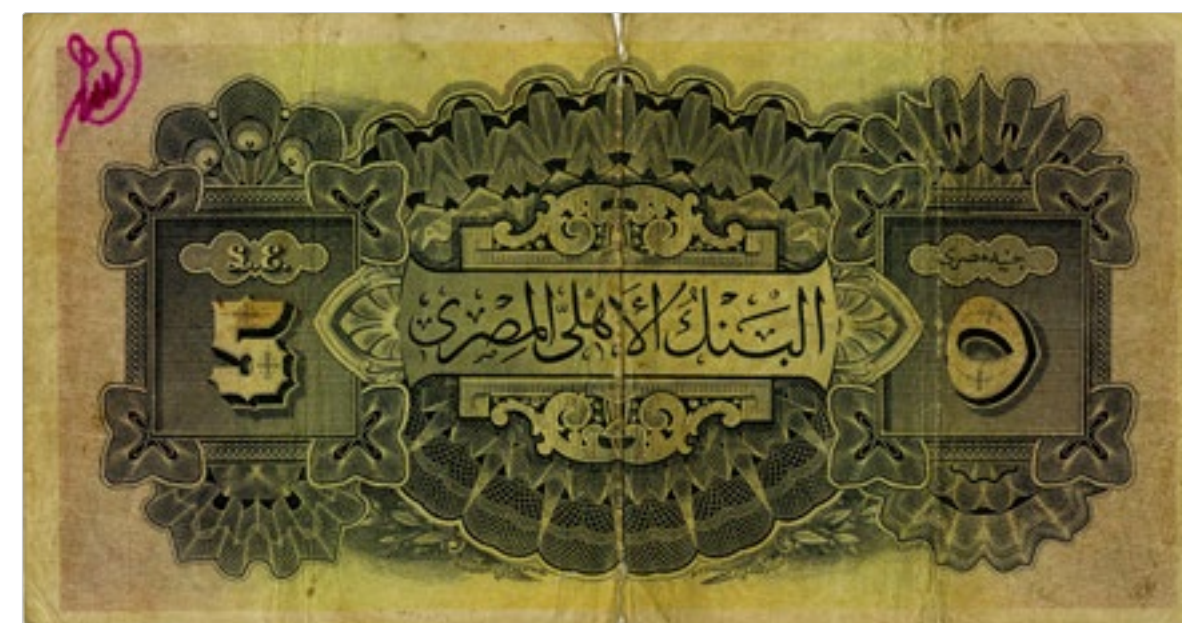 £.E.
5
البَنكُ الأَهلىّ المِصرى
جنيه مصرى
٥